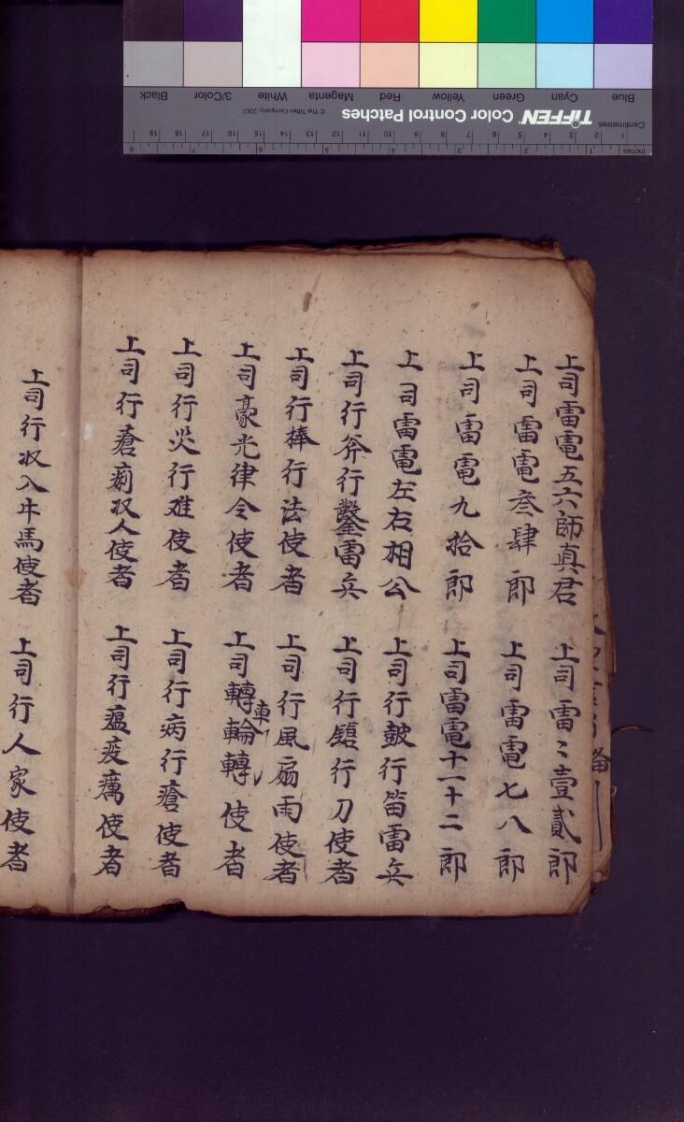 上司雷電五六師真君　上司雷〻壹貳郎
上司雷電叁肆郎　上司雷電七八郎
上司雷電九拾郎　上司雷電十一十二郎
上司雷電左右相公　上司行鼓行笛雷兵
上司行斧行鑿雷兵　上司行鎚行刀使者
上司行棒行法使者　上司行風扇雨使者
上司豪光律令使者　上司轉輪轉使者
上司行災行难使者　上司行病行瘡使者
上司行瘡痢収人使者　上司行瘟疫癘使者
上司行収入牛馬使者　上司行人家使者
Blue Cyan Green Yellow Red Magenta White 3/Color Black
TIFFEN Color Control Patches © The Tiffen Company, 2007
Centimetres 1 2 3 4 5 6 7 8 9 10 11 12 13 14 15 16 17 18 19
Inches 1 2 3 4 5 6 7 8